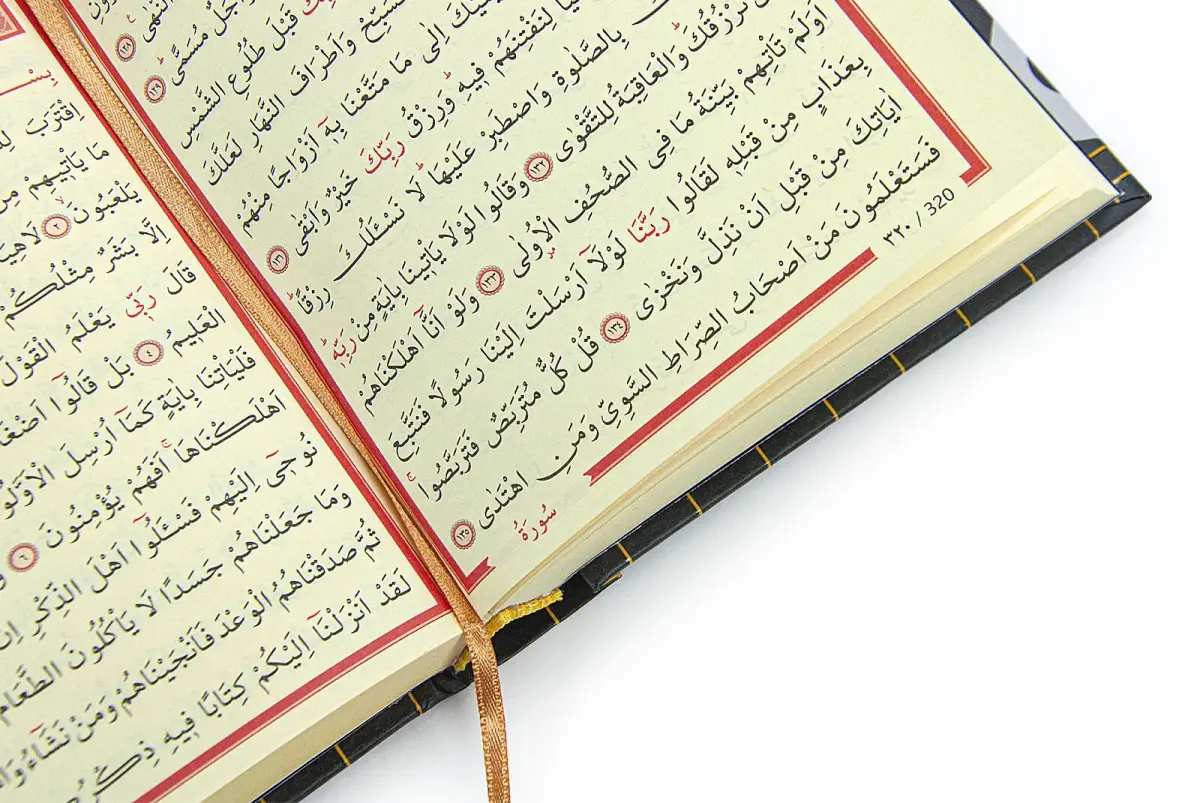 النُّهٰى ١٢٨
مُسَمًّى ١٢٩
قَبْلَ طُلُوعِ الشَّمْسِ
فَسَبِّحْ وَاَطْرَافَ النَّهَارِ لَعَلَّكَ
اِلٰى مَا مَتَّعْنَا بِهٖٓ اَزْوَاجًا مِنْهُمْ
لِنَفْتِنَهُمْ فٖيهِ وَرِزْقُ رَبِّكَ خَيْرٌ وَاَبْقٰى ١٣١
بِالصَّلٰوةِ وَاصْطَبِرْ عَلَيْهَا لَا نَسْـَٔلُكَ رِزْقًا
نَرْزُقُكَ وَالْعَاقِبَةُ لِلتَّقْوٰى ١٣٢ وَقَالُوا لَوْلَا يَأْتٖينَا بِاٰيَةٍ مِنْ رَبِّهٖ
اَوَلَمْ تَأْتِهِمْ بَيِّنَةُ مَا فِي الصُّحُفِ الْاُولٰى ١٣٣ وَلَوْ اَنَّٓا اَهْلَكْنَاهُمْ
بِعَذَابٍ مِنْ قَبْلِهٖ لَقَالُوا رَبَّنَا لَوْلَٓا اَرْسَلْتَ اِلَيْنَا رَسُولًا فَنَتَّبِعَ
اٰيَاتِكَ مِنْ قَبْلِ اَنْ نَذِلَّ وَنَخْزٰى ١٣٤ قُلْ كُلٌّ مُتَرَبِّصٌ فَتَرَبَّصُوا
فَسَتَعْلَمُونَ مَنْ اَصْحَابُ الصِّرَاطِ السَّوِيِّ وَمَنِ اهْتَدٰى ١٣٥
٣٢٠ / 320
سُورَةُ
اِقْتَرَبَ
مَا يَأْتٖيهِمْ مِنْ
يَلْعَبُونَ ٢ لَاهِيَةً
اِلَّا بَشَرٌ مِثْلُكُمْ
قَالَ رَبّٖي يَعْلَمُ الْقَوْلَ
الْعَلٖيمُ ٤ بَلْ قَالُٓوا اَضْغَاثُ
فَلْيَأْتِنَا بِاٰيَةٍ كَمَٓا اُرْسِلَ الْاَوَّلُونَ
اَهْلَكْنَاهَا اَفَهُمْ يُؤْمِنُونَ ٦
نُوحٖٓي اِلَيْهِمْ فَسْـَٔلُٓوا اَهْلَ الذِّكْرِ اِنْ
وَمَا جَعَلْنَاهُمْ جَسَدًا لَا يَأْكُلُونَ الطَّعَامَ
ثُمَّ صَدَقْنَاهُمُ الْوَعْدَ فَاَنْجَيْنَاهُمْ وَمَنْ نَشَٓاءُ
لَقَدْ اَنْزَلْنَٓا اِلَيْكُمْ كِتَابًا فٖيهِ ذِكْرُكُمْ